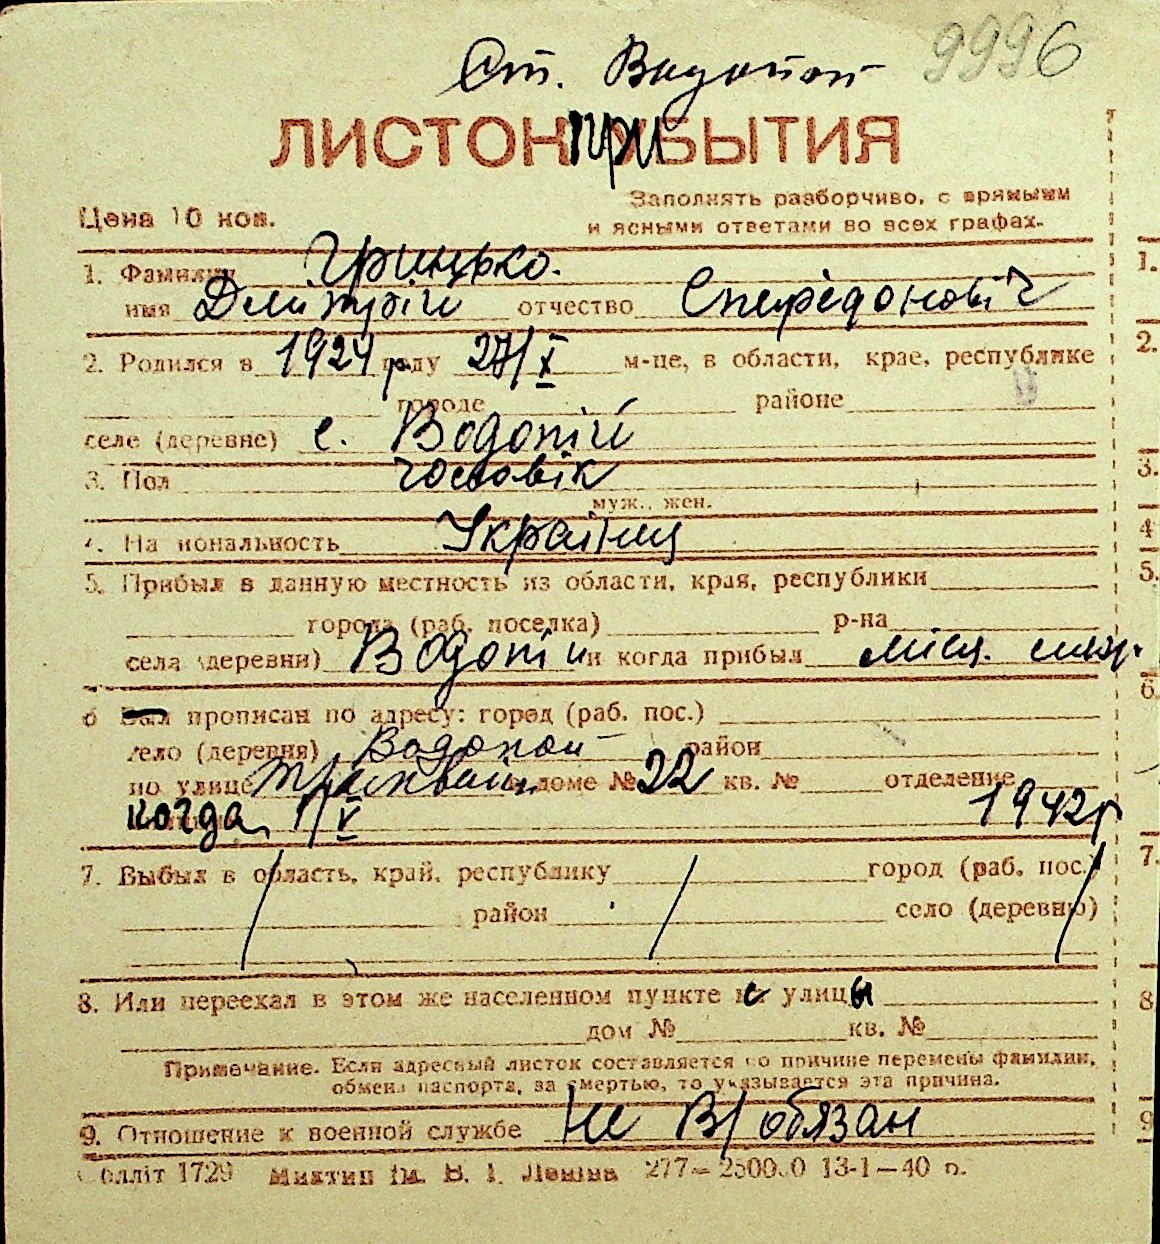 9996
Ст. Водопой
ЛИСТОК при УБЫТИЯ
Цена 10 коп.
Заполнять разборчиво, с прямыми
и ясными ответами во всех графах.
1. Фамилия Грицько.
имя Дмітрій отчество Сперідоновіч
2. Родился в 1924 р. году 27/X м-це, в области, крае, республике
городе районе
селе (деревне) с. Водопій
3. Пол чоловік
муж., жен.
4. Национальность Українец
5. Прибыл в данную местность из области, края, республики
города (раб. поселка) р-на
села (деревни) Водопій и когда прибыл місц.
6 Был прописан по адресу: город (раб. пос.)
село (деревня) Водопой район
по улице доме № 22 кв. № отделение
когда 1/V 1942 г
7. Выбыл в область, край, республику город (раб. пос.)
район село (деревню)
8. Или переехал в этом же населенном пункте с улицы
дом № кв. №
Примечание. Если адресный листок составляется по причине перемены фамилии,
обмена паспорта, за смертью, то указывается эта причина.
9. Отношение к военной службе Не В/обязан
Облліт 1729 Миктип ім. В. І. Леніна 277— 250000 13-1—40 р.
1.
2.
3.
4
5.
6.
7.
8
9